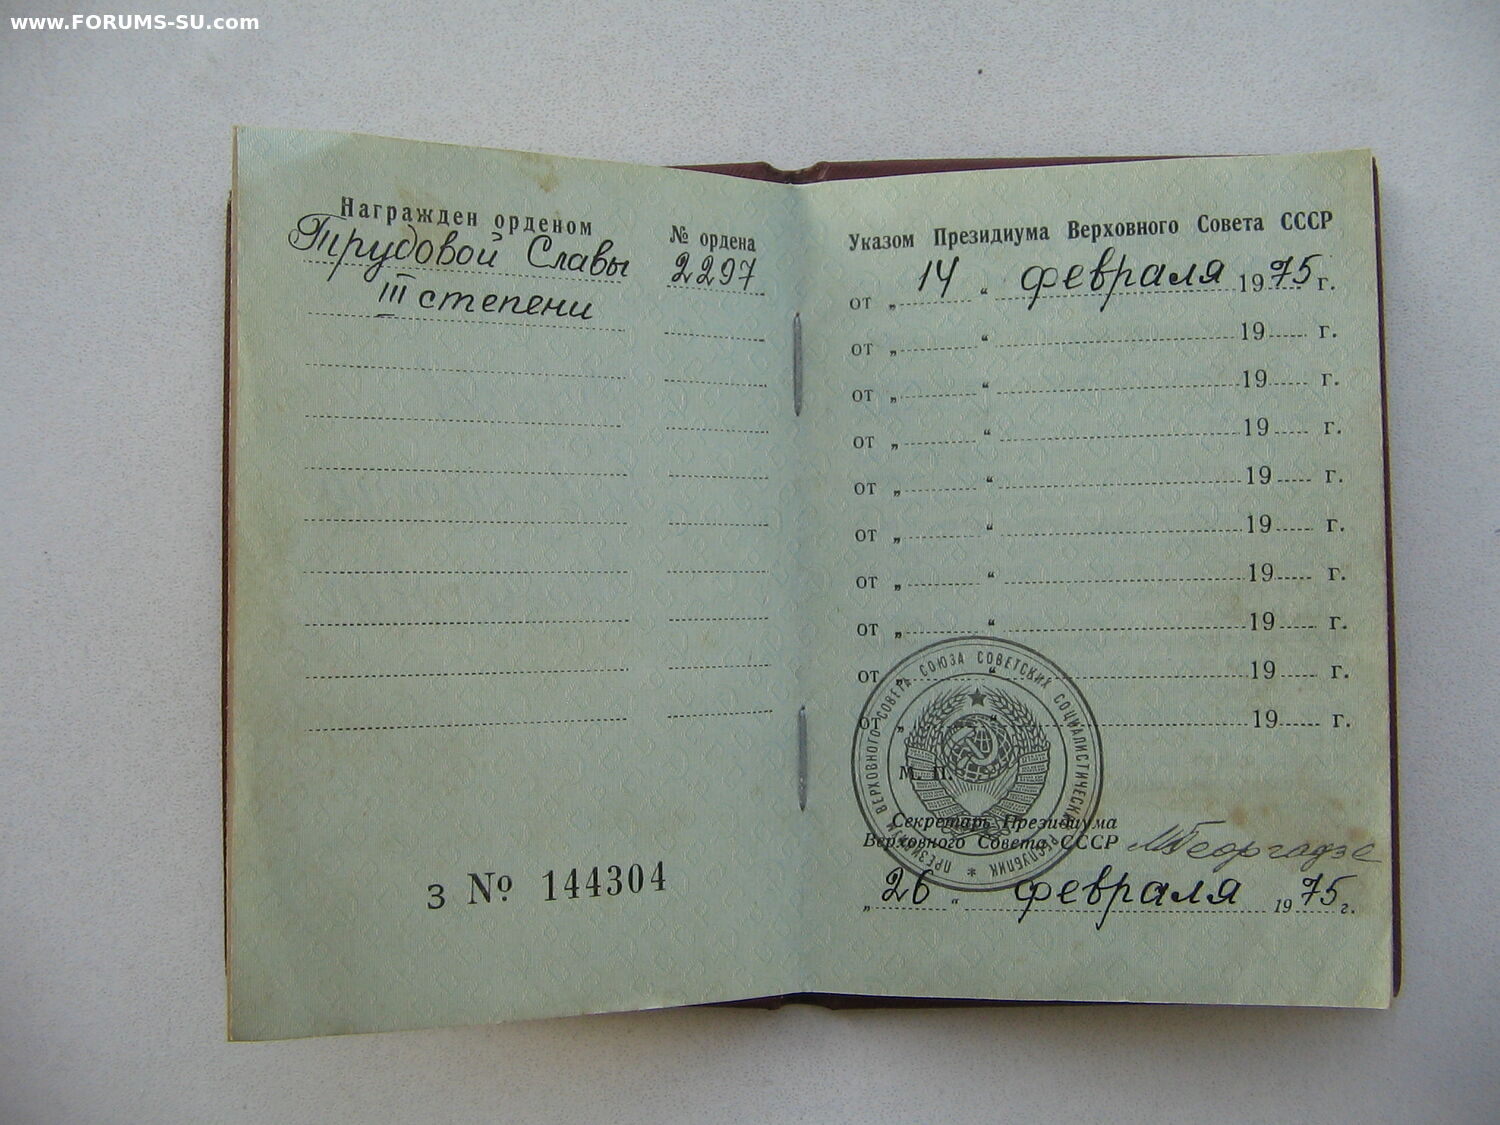 www.FORUMS-SU.com
Награжден орденом
№ ордена
Трудовой Славы
2297
III степени
З № 144304
Указом Президиума Верховного Совета СССР
от „ 14 “ февраля 1975 г.
от „ “ 19 г.
от „ “ 19 г.
от „ “ 19 г.
от „ “ 19 г.
от „ “ 19 г.
от „ “ 19 г.
от „ “ 19 г.
от „ “ 19 г.
от „ “ 19 г.
ПРЕЗИДИУМ ВЕРХОВНОГО СОВЕТА СОЮЗА СОВЕТСКИХ СОЦИАЛИСТИЧЕСКИХ РЕСПУБЛИК *
М. П.
Секретарь Президиума
Верховного Совета СССР МГеоргадзе
„ 26 “ февраля 1975 г.